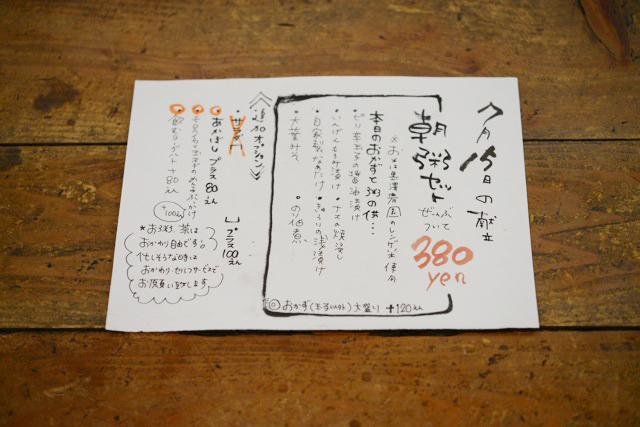 7月15日の献立
朝粥セット
ぜんぶ
ついて
380
yen
※お米は黒澤農園のレンゲ米使用
本日のおかずと粥の供…
・ピリ辛玉子の醤油漬け
・いんげんもろみ漬け
・ナスの煮浸し
・自家製なめたけ
・きゅうりの浅漬け
・大葉みそ
・のり佃煮
◎おかず(玉子以外)大盛り +120えん
追加オプション
・サラダ
・あかばし プラス80えん
プラス100えん
+80えん
+100えん
*お粥、茶は
おかわり自由です。
忙しそうな時は
おかわり、セルフサービスで
お願い致します